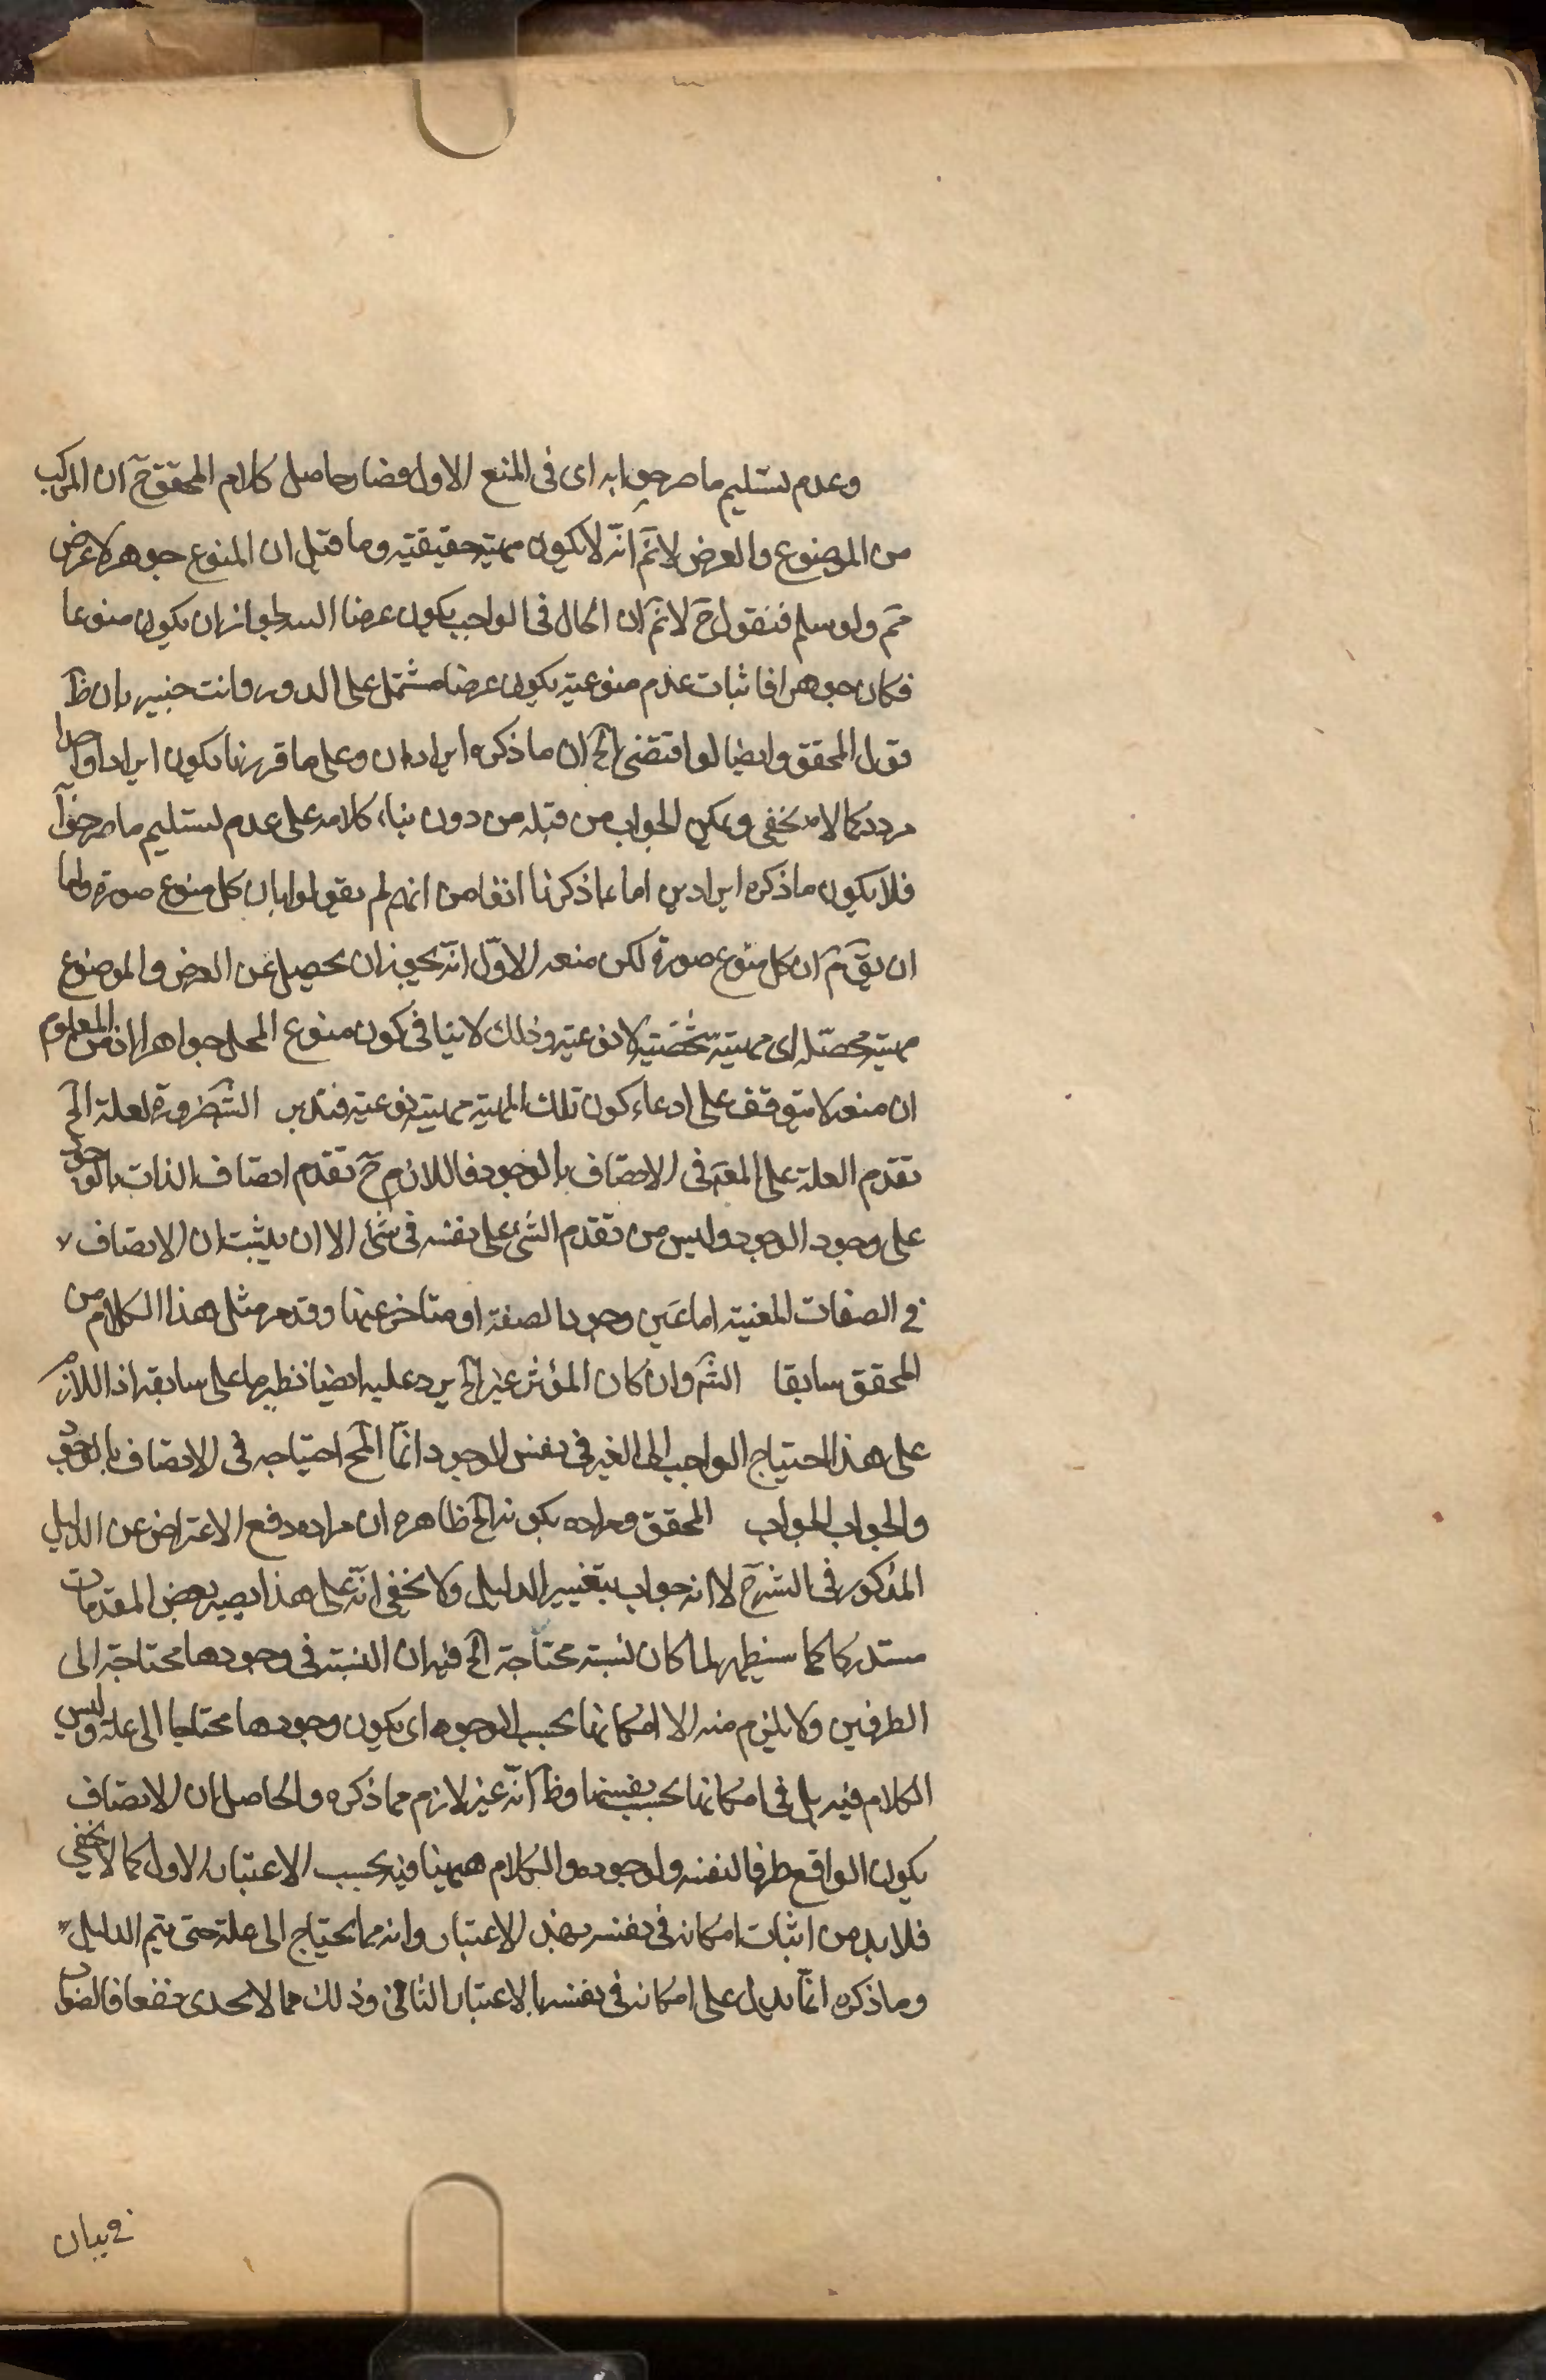 وعدم تسليم ما صرحوا به اى فى المنع الاول فصار حاصل كلام المحقق ح ان المركب
من الموضوع والعرض لانم انه لا يكون مهية حقيقية وما قيل ان المنوع جوهر لا عرض
مم ولو سلم فنقول ح لانم ان الحال فى الواجب يكون عرضا البتة لجواز ان يكون منوعا
فكان جوهرا فاثبات عدم منوعيته بكونه عرضا مشتمل على الدور وانت خبير بان ظ
قول المحقق وايضا لو اقتضى الخ ان ما ذكره ايرادان وعلى ما قررنا يكون ايرادا واحدا
مرددا كما لا يخفى ويمكن الجواب من قبله من دون بناء كلامه على عدم تسليم ما صرحوا
فلا يكون ما ذكره ايرادين اما بما ذكرنا انفا من انهم لم يقولوا بان كل منوع صورة واما
ان يق نم ان كل منوع صورة لكن منعه الاول انه يجوز ان يحصل من العرض والموضوع
مهية محصلة اى مهية شخصية لا نوعية وذلك لا ينافى كون منوع المحل جواهرا اذ من المعلوم
ان منعه لا يتوقف على ادعاء كون تلك المهية مهية نوعية فتدبر الش ضرورة لعلة الخ
تقدم العلة على المعلول فى الاتصاف بالوجود فاللازم ح تقدم اتصاف الذات بالوجود
على وجود الوجود وليس من تقدم الشئ على نفسه فى شئ الا ان يثبت ان الاتصاف
فى الصفات العينية اما عين وجود الصفة او متاخر عنها وقد مر مثل هذا الكلام من
المحقق سابقا الش وان كان المؤثر غير الخ يرد عليه ايضا نظير ما على سابقه اذ اللازم
على هذا احتياج الواجب الى الغير فى نفس الوجود انما المح احتياجه فى الاتصاف بالوجود
والجواب الجواب المحقق ومراده بكونه الخ ظاهره ان مراده دفع الاعتراض عن الدليل
المذكور فى الشرح لا انه جواب بتغيير الدليل ولا يخفى انه على هذا يصير بعض المقدمات
مستدركا كما سيظهر لما كان نسبة محتاجة الخ فيه ان النسبة فى وجودها محتاجة الى
الطرفين ولا يلزم منه الا امكانها بحسب الوجود اى يكون وجودها محتاجا الى علة وليس
الكلام فيه بل فى امكانها بحسب نفسها وظ انه غير لازم مما ذكره والحاصل ان الاتصاف
يكون الواقع ظرفا لنفسه ولوجوده والكلام ههنا فيه بحسب الاعتبار الاول كما لا يخفى
فلا بد من اثبات امكانه فى نفسه بهذا الاعتبار وانه مما يحتاج الى علة حتى يتم الدليل
وما ذكره انما يدل على امكانه فى نفسه بالاعتبار الثانى وذلك مما لا يجدى نفعا فالصواب
فى بيان